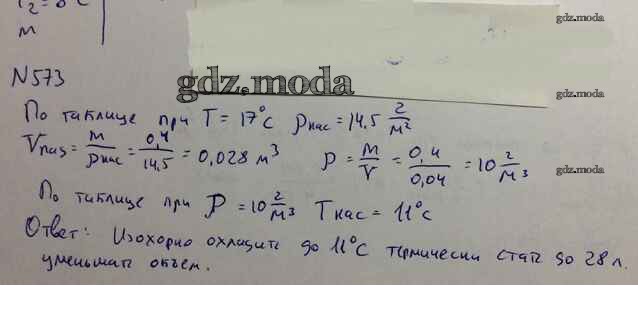 T₂ = 8°C
m
gdz.moda
N573
gdz.moda
gdz.moda
По таблице при T = 17°C ρнас = 14,5 г/м²
Vнас = m/ρнас = 0,4/14,5 = 0,028 м³ ρ = m/V = 0,4/0,04 = 10 г/м³
gdz.moda
По таблице при ρ = 10 г/м³ Tнас = 11°C
Ответ: Изохорно охладить до 11°C термически до 28 л.
уменьшать объем.